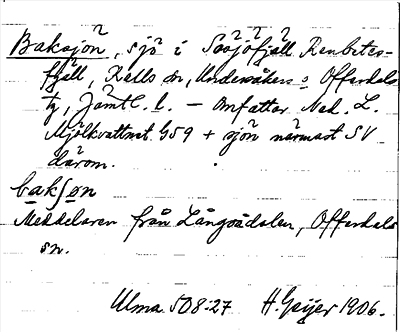 Baksjön, sjö i Sösjöfjäll Renbetes-
fjäll, Kalls sn, Undersåkers o Offerdals
tg, Jämtl. l. – Omfattar Ned. L.
Mjölkvattnet 459 + sjön närmast SV
därom.
baksøn
Meddelaren från Långsådalen, Offerdals
sn.
Ulma 508:27 H. Geijer 1906.